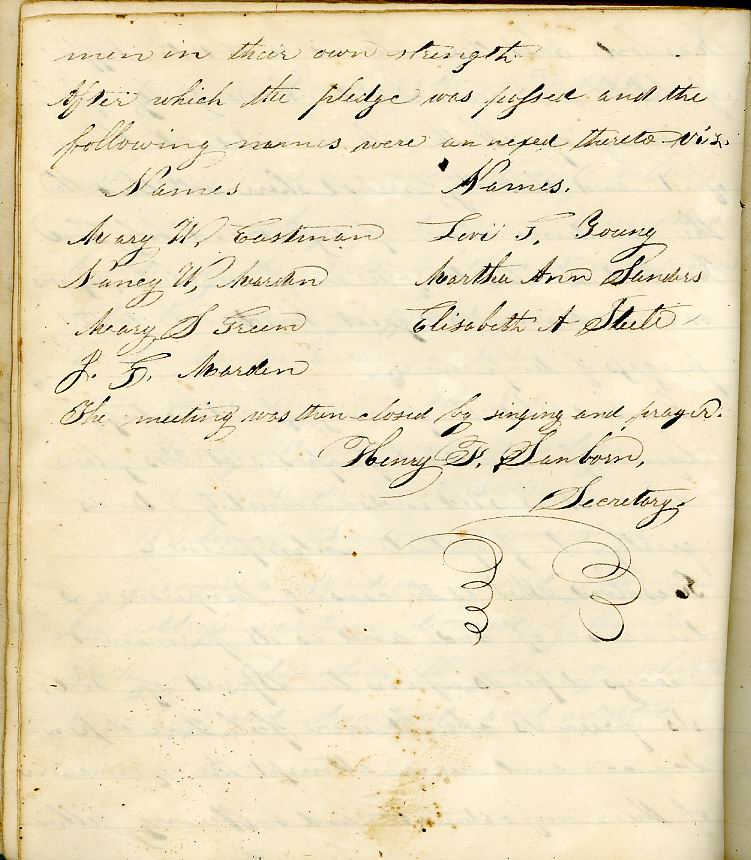 men in their own strength.
After which the pledge was passed and the
following names were annexed thereto viz.
Names Names.
Mary W. Eastman Levi F. Young
Nancy W. Marden Martha Ann Sanders
Mary S Green Elisabeth A Steele
J. G. Marden
The meeting was then closed by singing and prayer.
Henry F. Sanborn,
Secretary.